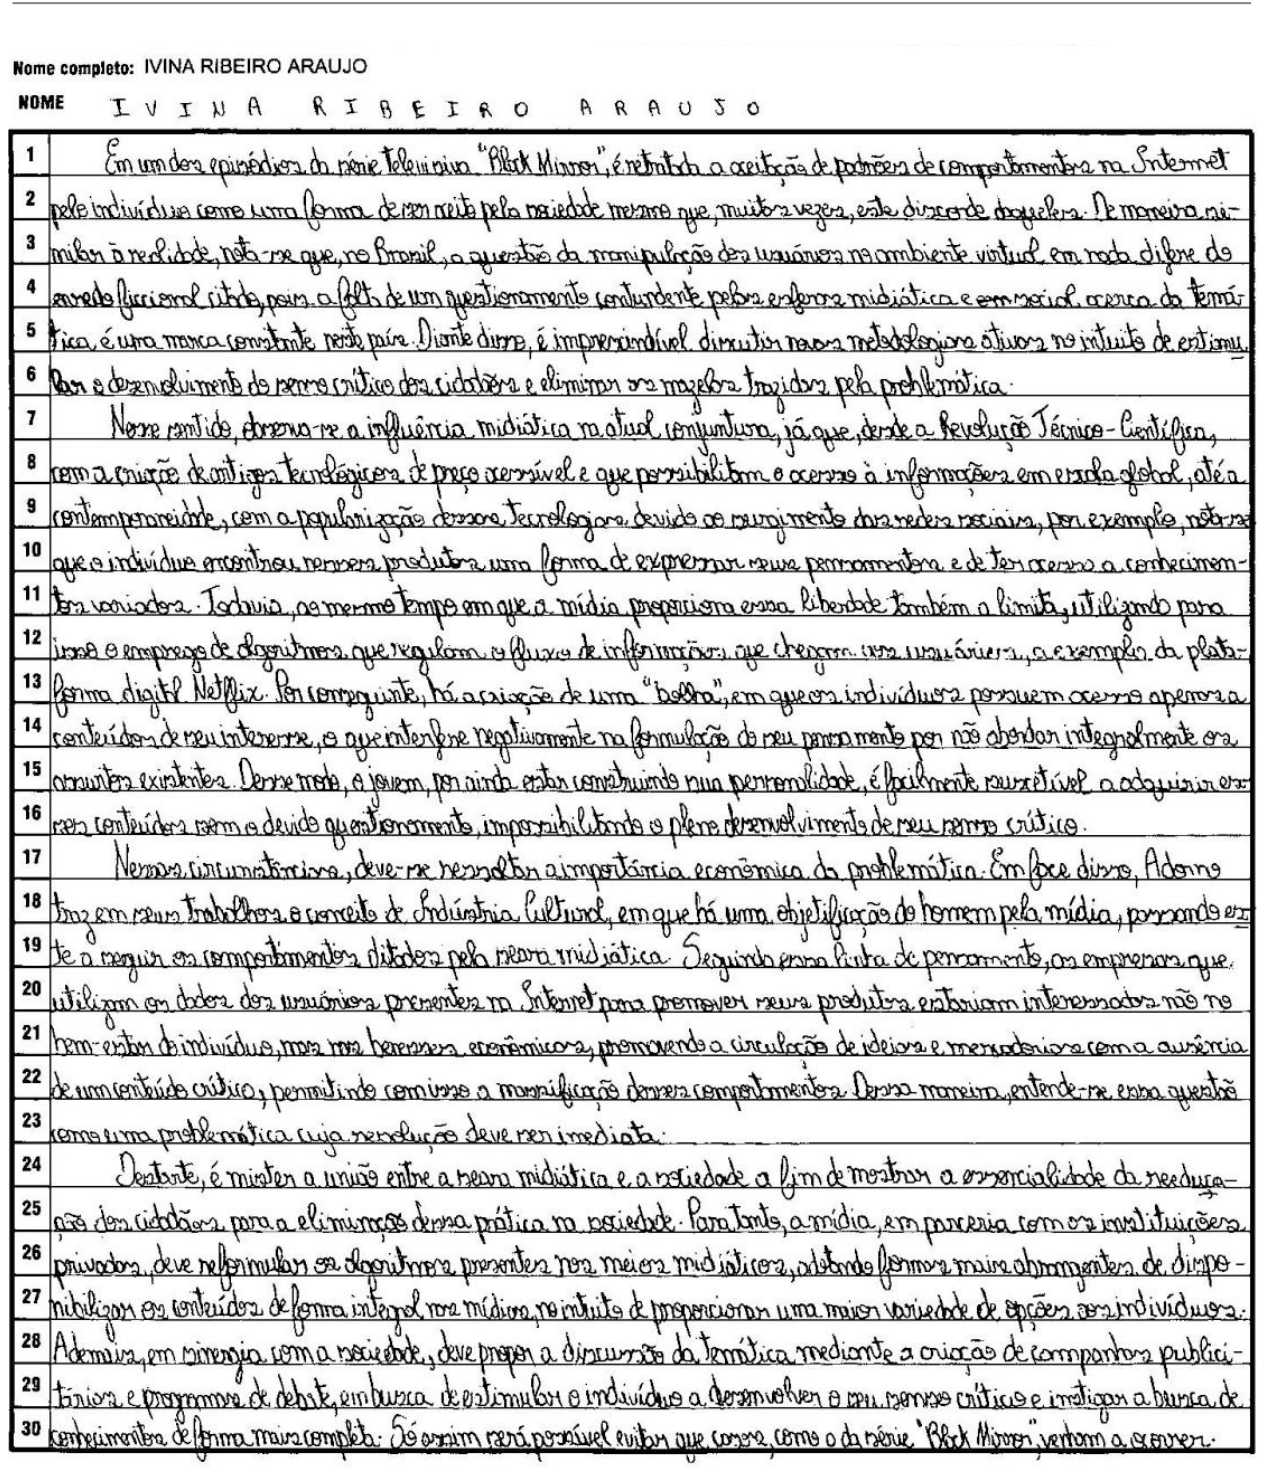 Nome completo: IVINA RIBEIRO ARAUJO
NOME IVINA RIBEIRO ARAUJO
1 Em um dos episódios da série televisiva "Black Mirror", é retratada a aceitação de padrões de comportamentos na Internet
2 pelo indivíduo como uma forma de ser aceito pela sociedade mesmo que, muitas vezes, este discorde daqueles. De maneira si-
3 milar à realidade, nota-se que, no Brasil, a questão da manipulação dos usuários no ambiente virtual em nada difere do
4 enredo ficcional citado, pois a falta de um questionamento contundente pelas esferas midiática e social acerca da temá-
5 tica é uma marca constante neste país. Diante disso, é imprescindível discutir novas metodologias ativas no intuito de estimu
6 lar o desenvolvimento do senso crítico dos cidadãos e eliminar as mazelas trazidas pela problemática.
7 Nesse sentido, observa-se a influência midiática na atual conjuntura, já que, desde a Revolução Técnico-Científica,
8 com a criação de artigos tecnológicos de preço acessível e que possibilitam o acesso à informações em escala global, até a
9 contemporaneidade, com a popularização dessas tecnologias devido ao surgimento das redes sociais, por exemplo, nota-se
10 que o indivíduo encontrou nesses produtos uma forma de expressar seus pensamentos e de ter acesso a conhecimen-
11 tos variados. Todavia, ao mesmo tempo em que a mídia proporciona essa liberdade também a limita, utilizando para
12 isso o emprego de algoritmos que regulam o fluxo de informações que chegam aos usuários, a exemplo da plata-
13 forma digital Netflix. Por conseguinte, há a criação de uma "bolha", em que os indivíduos possuem acesso apenas a
14 conteúdos de seu interesse, o que interfere negativamente na formulação do seu pensamento por não abordar integralmente os
15 assuntos existentes. Desse modo, o jovem, por ainda estar construindo sua personalidade, é facilmente suscetível a adquirir es-
16 ses conteúdos sem o devido questionamento, impossibilitando o pleno desenvolvimento de seu senso crítico.
17 Nessas circunstâncias, deve-se ressaltar a importância econômica da problemática. Em face disso, Adorno
18 traz em seus trabalhos o conceito de Indústria Cultural, em que há uma objetificação do homem pela mídia, passando es
19 te a seguir os comportamentos ditados pela seara midiática. Seguindo essa linha de pensamento, as empresas que
20 utilizam os dados dos usuários presentes na Internet para promover seus produtos estariam interessadas não no
21 bem-estar do indivíduo, mas nas benesses econômicas, promovendo a circulação de ideias e mercadorias com a ausência
22 de um conteúdo crítico, permitindo com isso a massificação desses comportamentos. Dessa maneira, entende-se essa questão
23 como uma problemática cuja resolução deve ser imediata.
24 Destarte, é mister a união entre a seara midiática e a sociedade a fim de mostrar a essencialidade da reeduca-
25 ção dos cidadãos para a eliminação dessa prática na sociedade. Para tanto, a mídia, em parceria com as instituições
26 privadas, deve reformular os algoritmos presentes nos meios midiáticos, adotando formas mais abrangentes de dispo-
27 nibilizar os conteúdos de forma integral nas mídias, no intuito de proporcionar uma maior variedade de opções aos indivíduos.
28 Ademais, em sinergia com a sociedade, deve propor a discussão da temática mediante a criação de campanhas publici-
29 tárias e programas de debate, em busca de estimular o indivíduo a desenvolver o seu senso crítico e instigar a busca de
30 conhecimentos de forma mais completa. Só assim será possível evitar que casos, como o da série "Black Mirror", venham a ocorrer.